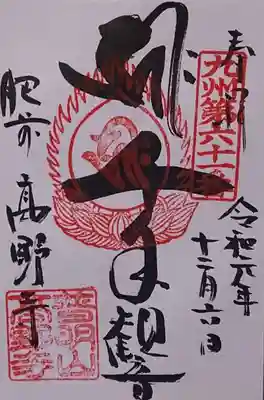 奉拝
九州第六十一番
令和元年
十二月六日
千手観音
肥前
高野寺